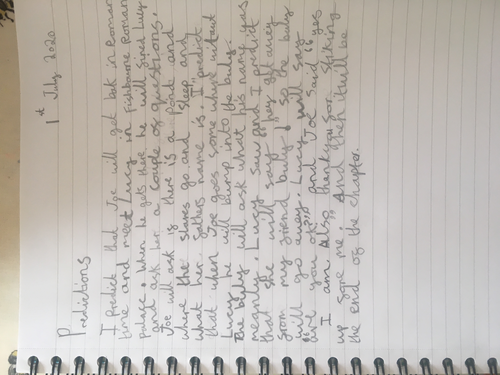 1st July 2020
Predictions
I predict that Joe will get bak in Roman
time and meet Lucy in Fishbourne Roman
Palace. When he gets there he will find Lucy
and ask her a couple of questions.
Joe will ask is there is a Ponde and
where the slaves go and sleep and
what her fathers name is. I predict
that when Joe goes some where without
Lucy he will bump into the buly.
The buly will ask what his name was
meanly. Lucy saw and I predict
that she will say "hey get away
from my friend buly! so the buly
will go away. Lucy will say
are you ok?" and Joe said "yes
I am Also thenkyou for stiking
up fore me." And then it will be
the end of the chapter.